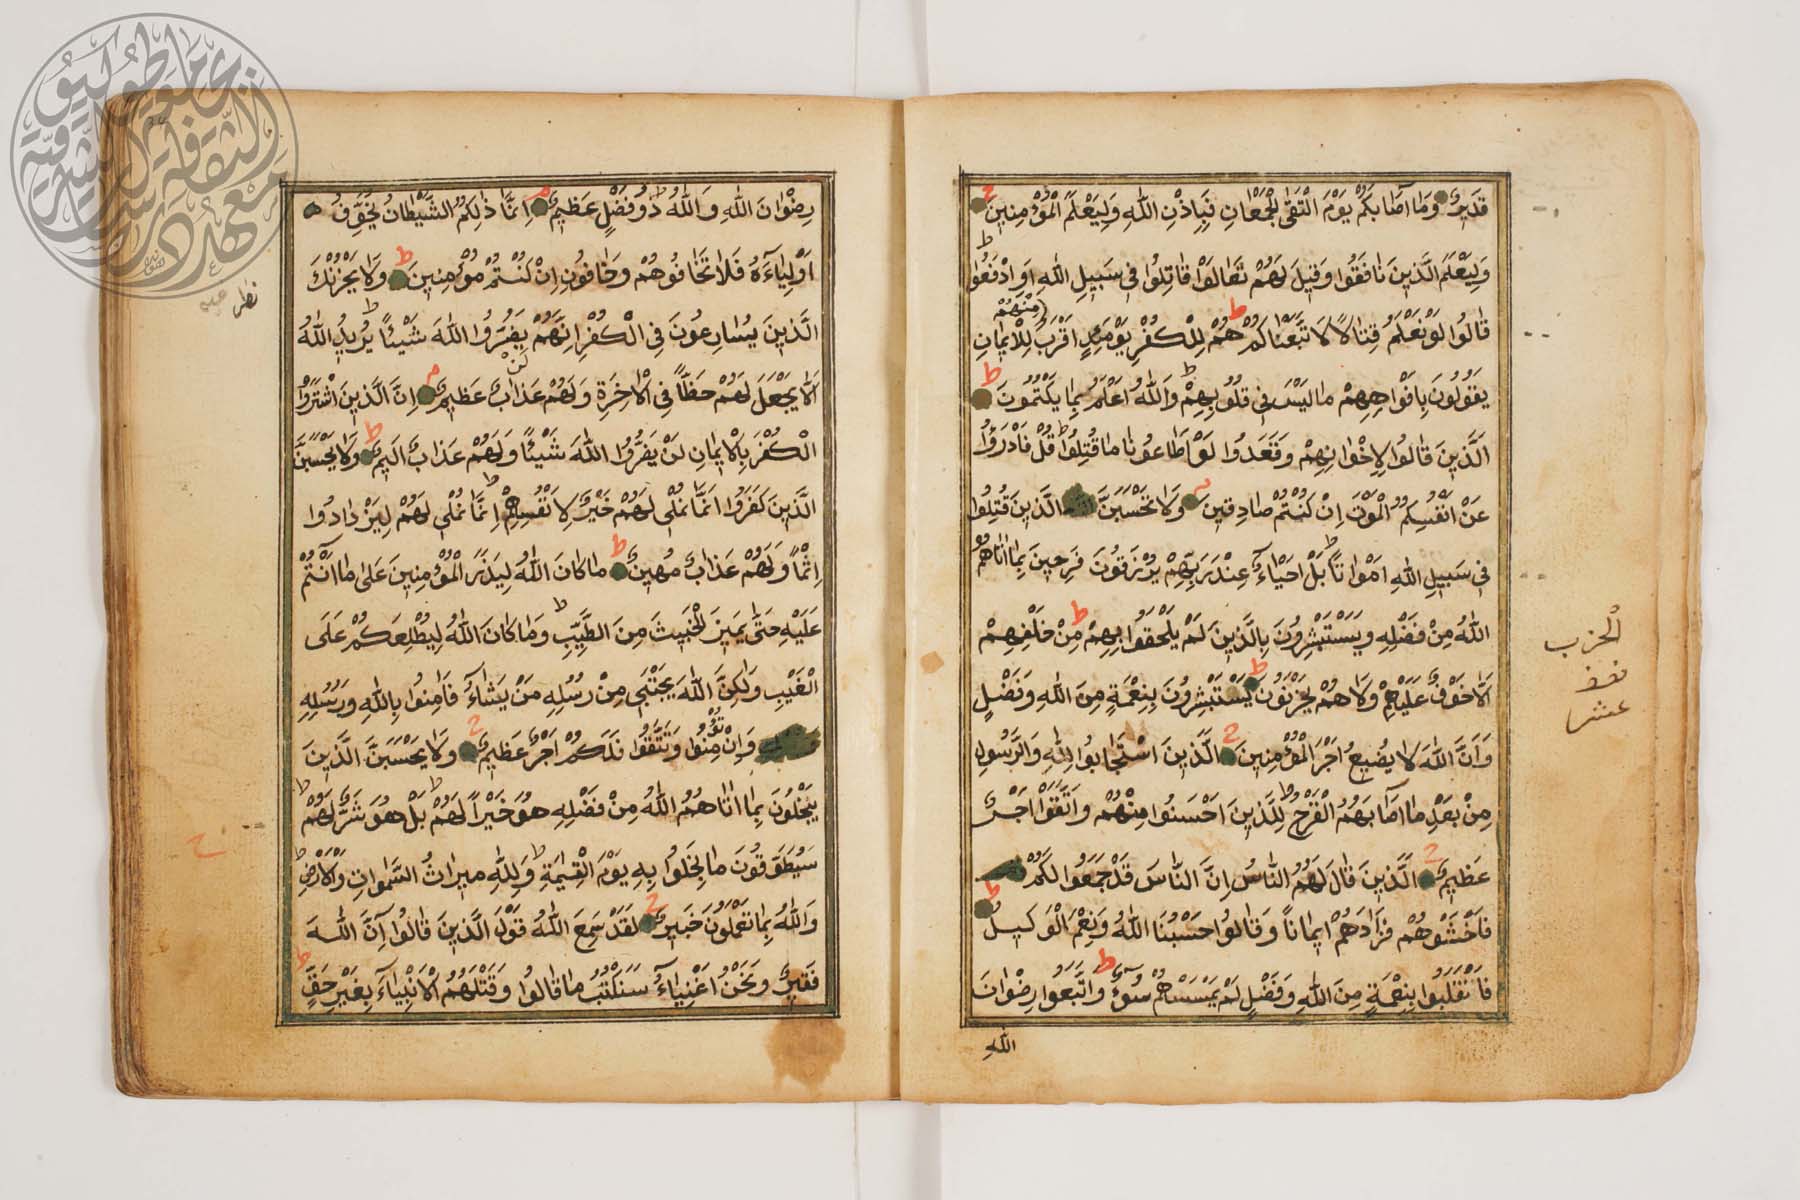 قَدِيرٌ وَمَا اَصَابَكُمْ يَوْمَ الْتَقَى الْجَمْعَانِ فَبِاِذْنِ اللّٰهِ وَلِيَعْلَمَ الْمُؤْمِنِينَ
وَلِيَعْلَمَ الَّذِينَ نَافَقُوا وَقِيلَ لَهُمْ تَعَالَوْا قَاتِلُوا فِي سَبِيلِ اللّٰهِ اَوِ ادْفَعُوا
قَالُوا لَوْ نَعْلَمُ قِتَالًا لَا تَّبَعْنَاكُمْ هُمْ لِلْكُفْرِ يَوْمَئِذٍ اَقْرَبُ مِنْهُمْ لِلْاِيمَانِ
يَقُولُونَ بِاَفْوَاهِهِمْ مَا لَيْسَ فِي قُلُوبِهِمْ وَاللّٰهُ اَعْلَمُ بِمَا يَكْتُمُونَ
اَلَّذِينَ قَالُوا لِاِخْوَانِهِمْ وَقَعَدُوا لَوْ اَطَاعُونَا مَا قُتِلُوا قُلْ فَادْرَؤُا
عَنْ اَنْفُسِكُمُ الْمَوْتَ اِنْ كُنْتُمْ صَادِقِينَ وَلَا تَحْسَبَنَّ الَّذِينَ قُتِلُوا
فِي سَبِيلِ اللّٰهِ اَمْوَاتًا بَلْ اَحْيَاءٌ عِنْدَ رَبِّهِمْ يُرْزَقُونَ فَرِحِينَ بِمَا اٰتَاهُمُ
اللّٰهُ مِنْ فَضْلِهِ وَيَسْتَبْشِرُونَ بِالَّذِينَ لَمْ يَلْحَقُوا بِهِمْ مِنْ خَلْفِهِمْ
اَلَّا خَوْفٌ عَلَيْهِمْ وَلَا هُمْ يَحْزَنُونَ يَسْتَبْشِرُونَ بِنِعْمَةٍ مِنَ اللّٰهِ وَفَضْلٍ
وَاَنَّ اللّٰهَ لَا يُضِيعُ اَجْرَ الْمُؤْمِنِينَ الَّذِينَ اسْتَجَابُوا لِلّٰهِ وَالرَّسُولِ
مِنْ بَعْدِ مَا اَصَابَهُمُ الْقَرْحُ لِلَّذِينَ اَحْسَنُوا مِنْهُمْ وَاتَّقَوْا اَجْرٌ
عَظِيمٌ اَلَّذِينَ قَالَ لَهُمُ النَّاسُ اِنَّ النَّاسَ قَدْ جَمَعُوا لَكُمْ
فَاخْشَوْهُمْ فَزَادَهُمْ اِيمَانًا وَقَالُوا حَسْبُنَا اللّٰهُ وَنِعْمَ الْوَكِيلُ
فَانْقَلَبُوا بِنِعْمَةٍ مِنَ اللّٰهِ وَفَضْلٍ لَمْ يَمْسَسْهُمْ سُوءٌ وَاتَّبَعُوا رِضْوَانَ
اللّٰهِ
الحزب
نصف
عشر
رِضْوَانَ اللّٰهِ وَاللّٰهُ ذُو فَضْلٍ عَظِيمٍ اِنَّمَا ذٰلِكُمُ الشَّيْطَانُ يُخَوِّفُ
اَوْلِيَاءَهُ فَلَا تَخَافُوهُمْ وَخَافُونِ اِنْ كُنْتُمْ مُؤْمِنِينَ وَلَا يَحْزُنْكَ
الَّذِينَ يُسَارِعُونَ فِي الْكُفْرِ اِنَّهُمْ لَنْ يَضُرُّوا اللّٰهَ شَيْئًا يُرِيدُ اللّٰهُ
اَلَّا يَجْعَلَ لَهُمْ حَظًّا فِي الْاٰخِرَةِ وَلَهُمْ عَذَابٌ عَظِيمٌ اِنَّ الَّذِينَ اشْتَرَوُا
الْكُفْرَ بِالْاِيمَانِ لَنْ يَضُرُّوا اللّٰهَ شَيْئًا وَلَهُمْ عَذَابٌ اَلِيمٌ وَلَا يَحْسَبَنَّ
الَّذِينَ كَفَرُوا اَنَّمَا نُمْلِي لَهُمْ خَيْرٌ لِاَنْفُسِهِمْ اِنَّمَا نُمْلِي لَهُمْ لِيَزْدَادُوا
اِثْمًا وَلَهُمْ عَذَابٌ مُهِينٌ مَا كَانَ اللّٰهُ لِيَذَرَ الْمُؤْمِنِينَ عَلٰى مَا اَنْتُمْ
عَلَيْهِ حَتّٰى يَمِيزَ الْخَبِيثَ مِنَ الطَّيِّبِ وَمَا كَانَ اللّٰهُ لِيُطْلِعَكُمْ عَلَى
الْغَيْبِ وَلٰكِنَّ اللّٰهَ يَجْتَبِي مِنْ رُسُلِهِ مَنْ يَشَاءُ فَاٰمِنُوا بِاللّٰهِ وَرُسُلِهِ
وَاِنْ تُؤْمِنُوا وَتَتَّقُوا فَلَكُمْ اَجْرٌ عَظِيمٌ وَلَا يَحْسَبَنَّ الَّذِينَ
يَبْخَلُونَ بِمَا اٰتَاهُمُ اللّٰهُ مِنْ فَضْلِهِ هُوَ خَيْرًا لَهُمْ بَلْ هُوَ شَرٌّ لَهُمْ
سَيُطَوَّقُونَ مَا بَخِلُوا بِهِ يَوْمَ الْقِيٰمَةِ وَلِلّٰهِ مِيرَاثُ السَّمٰوَاتِ وَالْاَرْضِ
وَاللّٰهُ بِمَا تَعْمَلُونَ خَبِيرٌ لَقَدْ سَمِعَ اللّٰهُ قَوْلَ الَّذِينَ قَالُوا اِنَّ اللّٰهَ
فَقِيرٌ وَنَحْنُ اَغْنِيَاءُ سَنَكْتُبُ مَا قَالُوا وَقَتْلَهُمُ الْاَنْبِيَاءَ بِغَيْرِ حَقٍّ
نظر